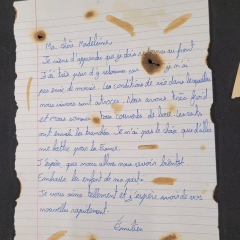 Ma chère Madeleine,
Je viens d'apprendre que je dois retourner au front
J'ai très peur d'y retourner car je n'ai
pas envie de mourir. Les conditions de vie dans lesquelles
nous vivons sont atroces. Nous avons très froid
et nous sommes tous couverts de boue. Les rats
ont envahi les tranchées. Je n'ai pas le choix que d'aller
me battre pour la France.
J'espère que nous allons nous revoir bientôt.
Embrasse les enfant de ma part.
Je vous aime tellement et j'espère avoir de vos
nouvelles rapidement.
Émilien